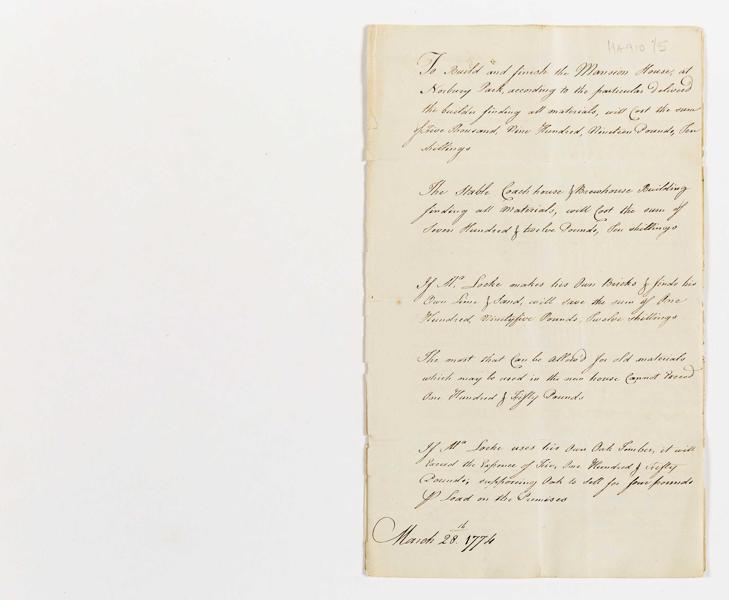 HA910 1/5
To Build and finish the Mansion House, at
Norbury Park, according to the particular Deliverd
the builder finding all materials, will Cost the sum
of Five Thousand, Nine Hundred, Nineteen Pounds, Ten
shillings
The Stable Coachhouse & Brewhouse Building
finding all Materials, will Cost the sum of
Seven Hundred & twelve Pounds, Ten shillings
If Mr. Locke makes his Own Bricks & finds his
Own Lime & Sand, will save the sum of One
Hundred, Ninetyfive Pounds, Twelve shillings
The most that Can be allow'd for old materials
which may be used in the new house Cannot Exceed
One Hundred & Fifty Pounds
If Mr. Locke uses his Own Oak Timber, it will
Exceed the Expence of Fir, One Hundred & Fifty
Pounds, supposing Oak to sell for four pounds
Pr Load on the Premises
March 28th. 1774